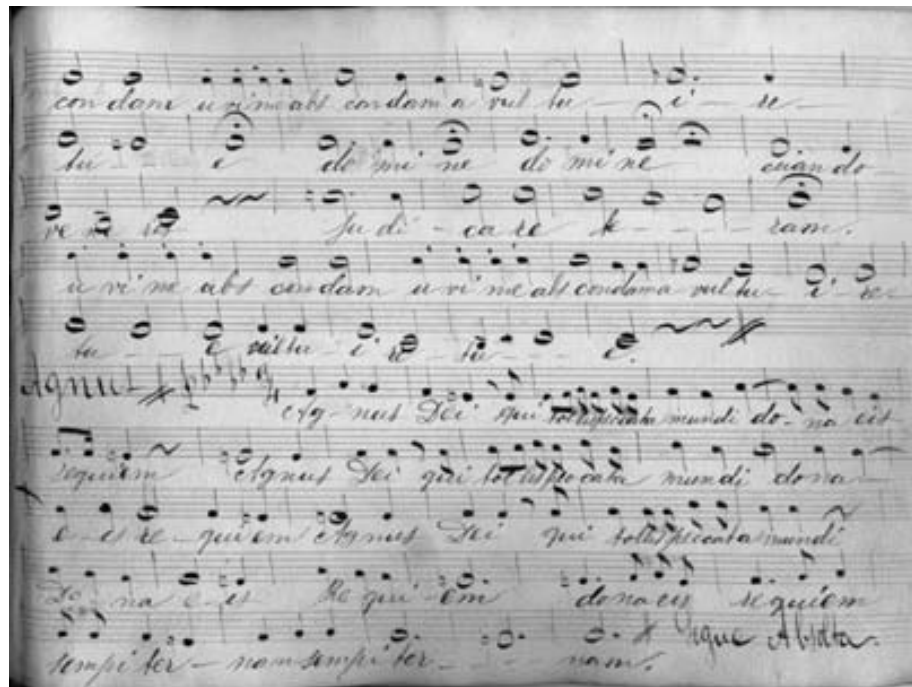 con dam u vi me abs con dam a vul tu - i - re -
tu - e do mi ne do mi ne cuan do
ve ne ris Ju di - ca re te - - - ram.
u vi me abs con dam u vi me abs con dam a vul tu - i - re
tu - - e vul tu - i - re - tu - - - e.
Agnus
Ag - nus Dei qui tollis pecata mundi do - na eis
requiem Agnus Dei qui tollis pecata mundi dona -
e - is re - quiem Agnus Dei qui tollis pecata mundi
Do - na e - is Re qui - em dona eis requiem
sempi ter - nam sempi ter - - - nam. Sigue Absolta.